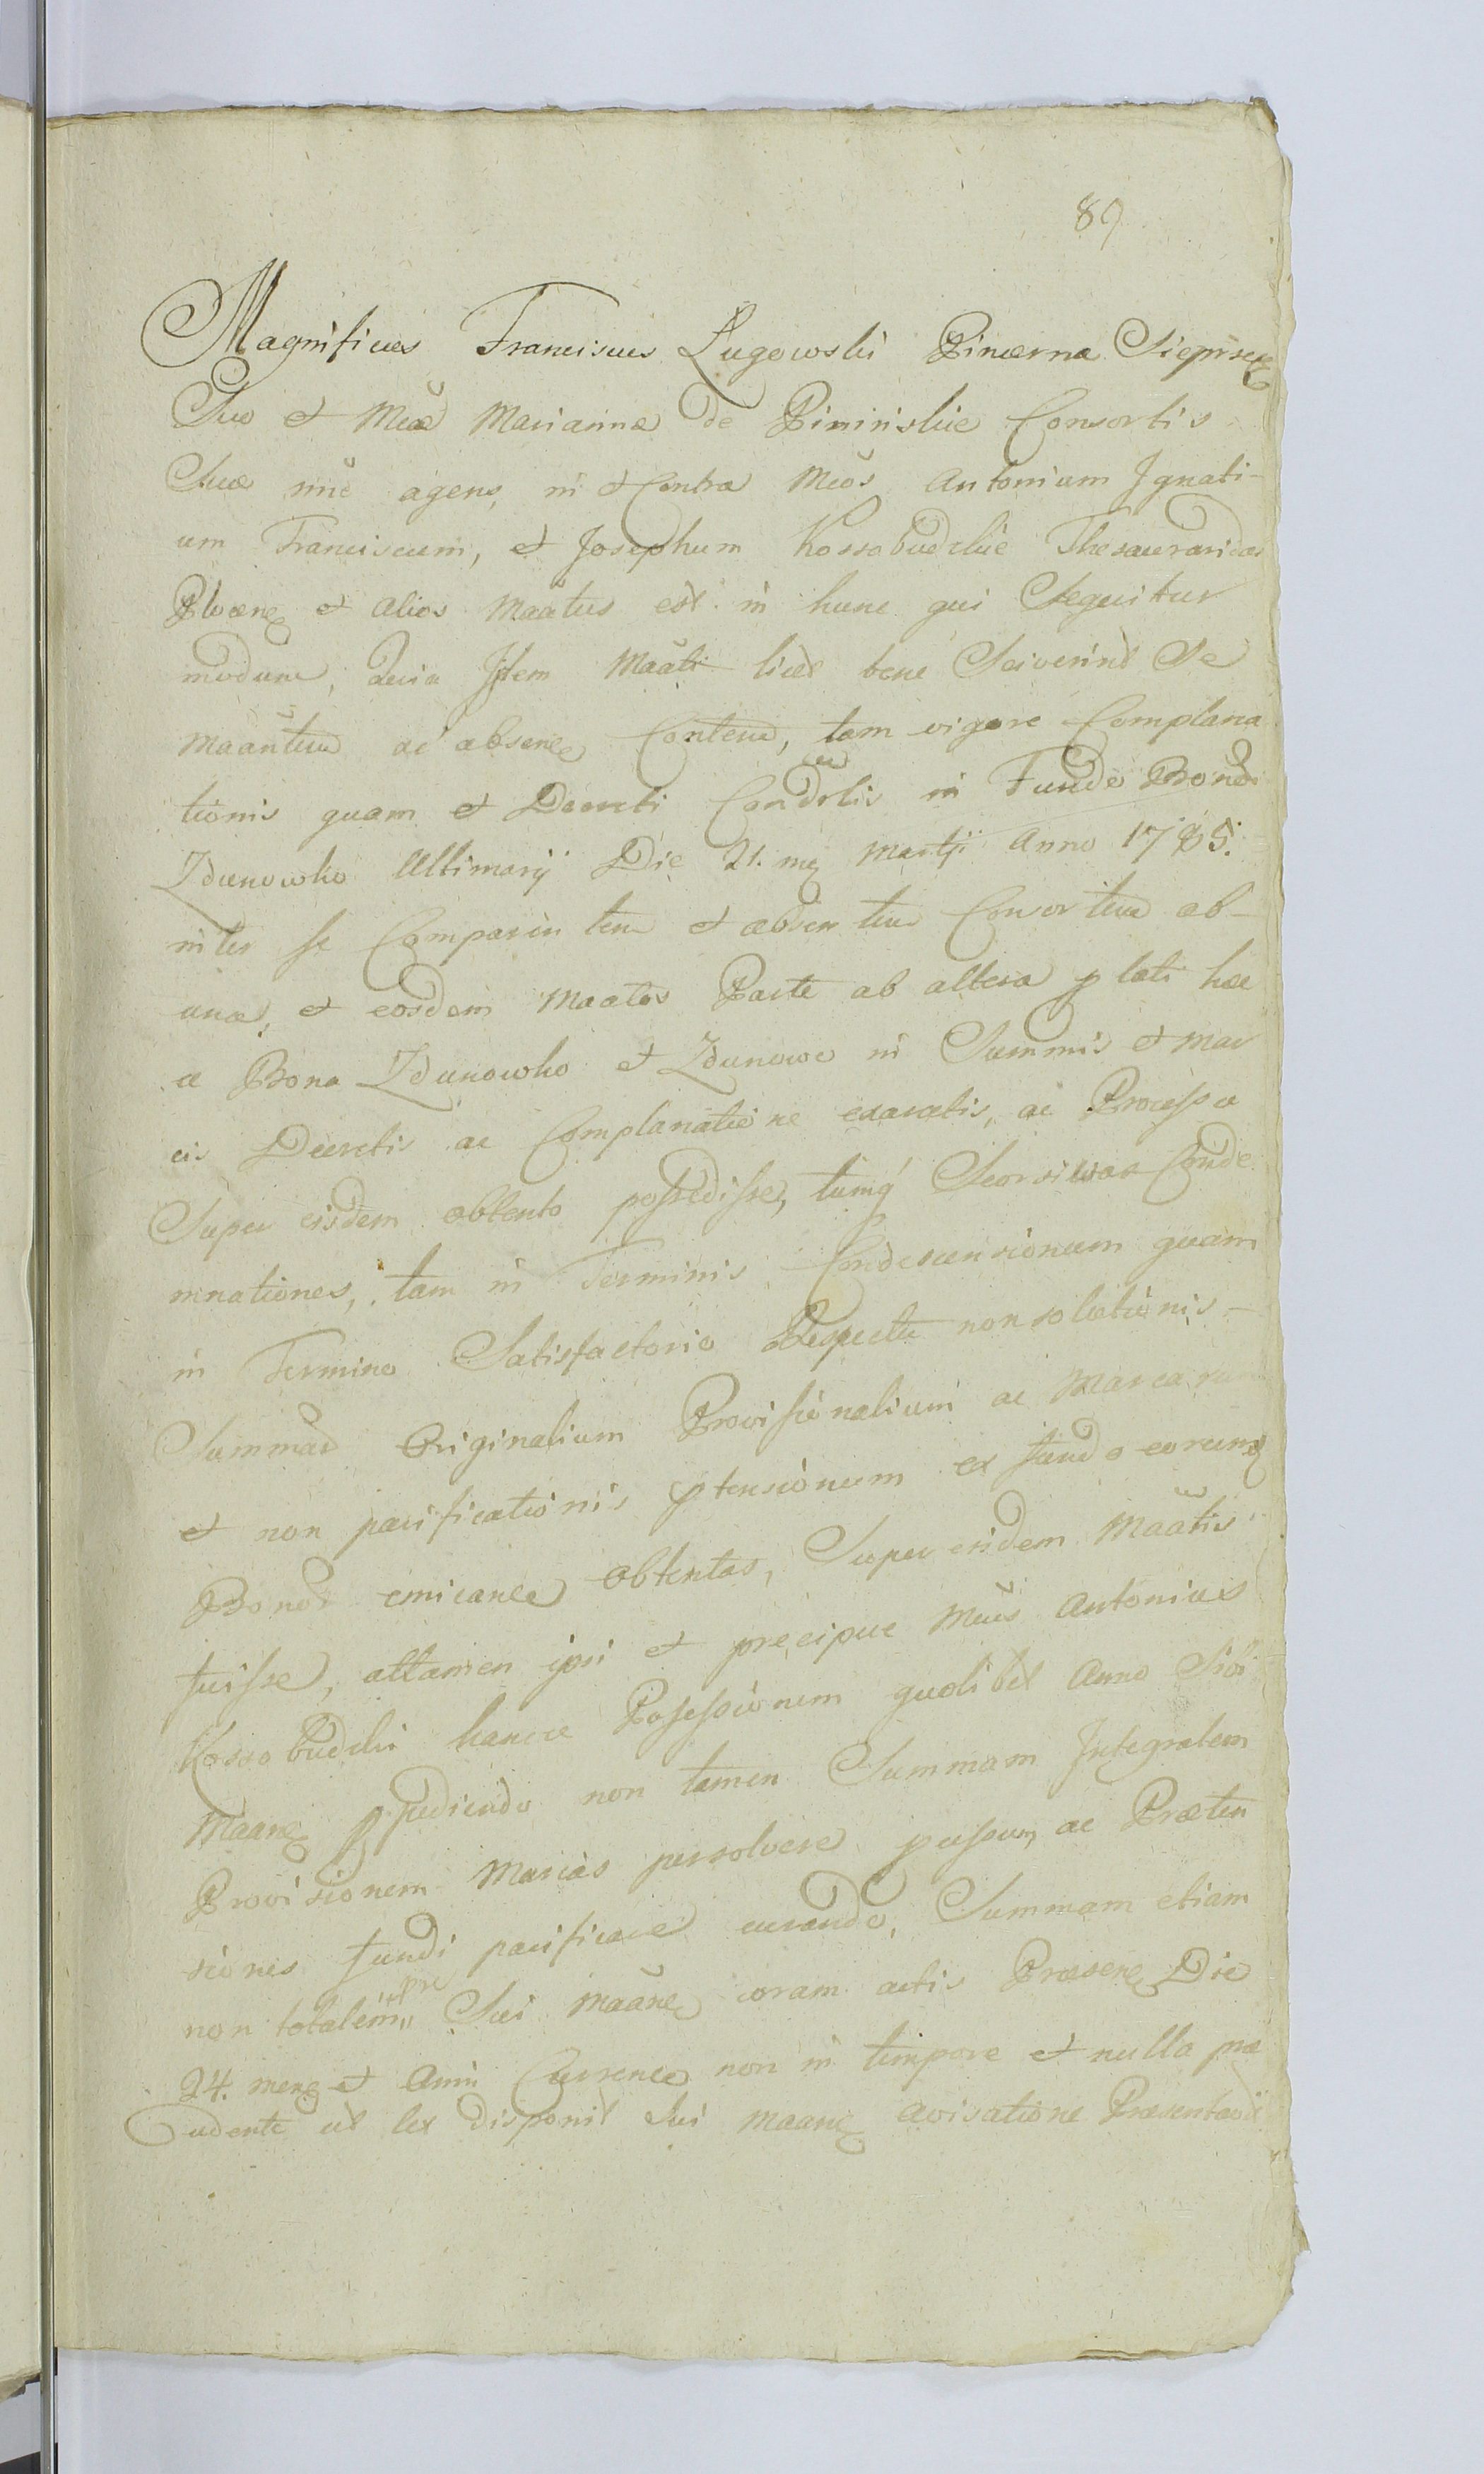 89
Magnificus Franciscus Lugowski Pincerna Sieprscen
Suo et Mcae Mariannae de Pininskie Consortis
Suae nne agens, in et Contra Mcos Antonium Ignati-
um Franciscum, et Josephum Kossobudzkie Thesauraridas
Plocen et alios Maatus est in hunc qui Sequitur
modum, Quia Iidem Maati licet bene Sciverint Se
Maantem ac absen Contem, tam vigore Complana
tionis quam et Decreti Condrlis in Fundo Bonor
Zdunowko Ultimarÿ Die 21. mg Martÿ Anno 1785.
inter se Comparentem et absentem Consortem ab
una, et eosdem Maatos Parte ab altera p lati hae
c Bona Zdunowko et Zdunowo in Summis et Mar
cis Decretis ac Complanatione exaratis, ac Processu
Super eisdem obtento possedisse, tumq Seorsivas Conde
mnationes, tam in Terminis Condescensionum quam
in Termino Satisfactorio Respectu non solutionis
Summar Originalium Provisionalium ac Marcarum
et non pacificationis ptensionum ex fundo eorumq
Bonor emicance obtentas, Super eisdem Maatis
fuisse, attamen ipsi et precipue Mcus Antonius
Kossobudzki hancce Possessionem quolibet Anno Sibi
Maane pjudicando non tamen Summam Integralem
Provisionem Marcas persolvere passum, ac Praeten
siones fundi pacificare curando, Summam etiam
non totalem pre Sui Maane coram actis Praesen Die
24. mens et Anni Curren non in tempore et nulla prae
cedente ut lex disponit Sui Maane avisatione Praesentavit